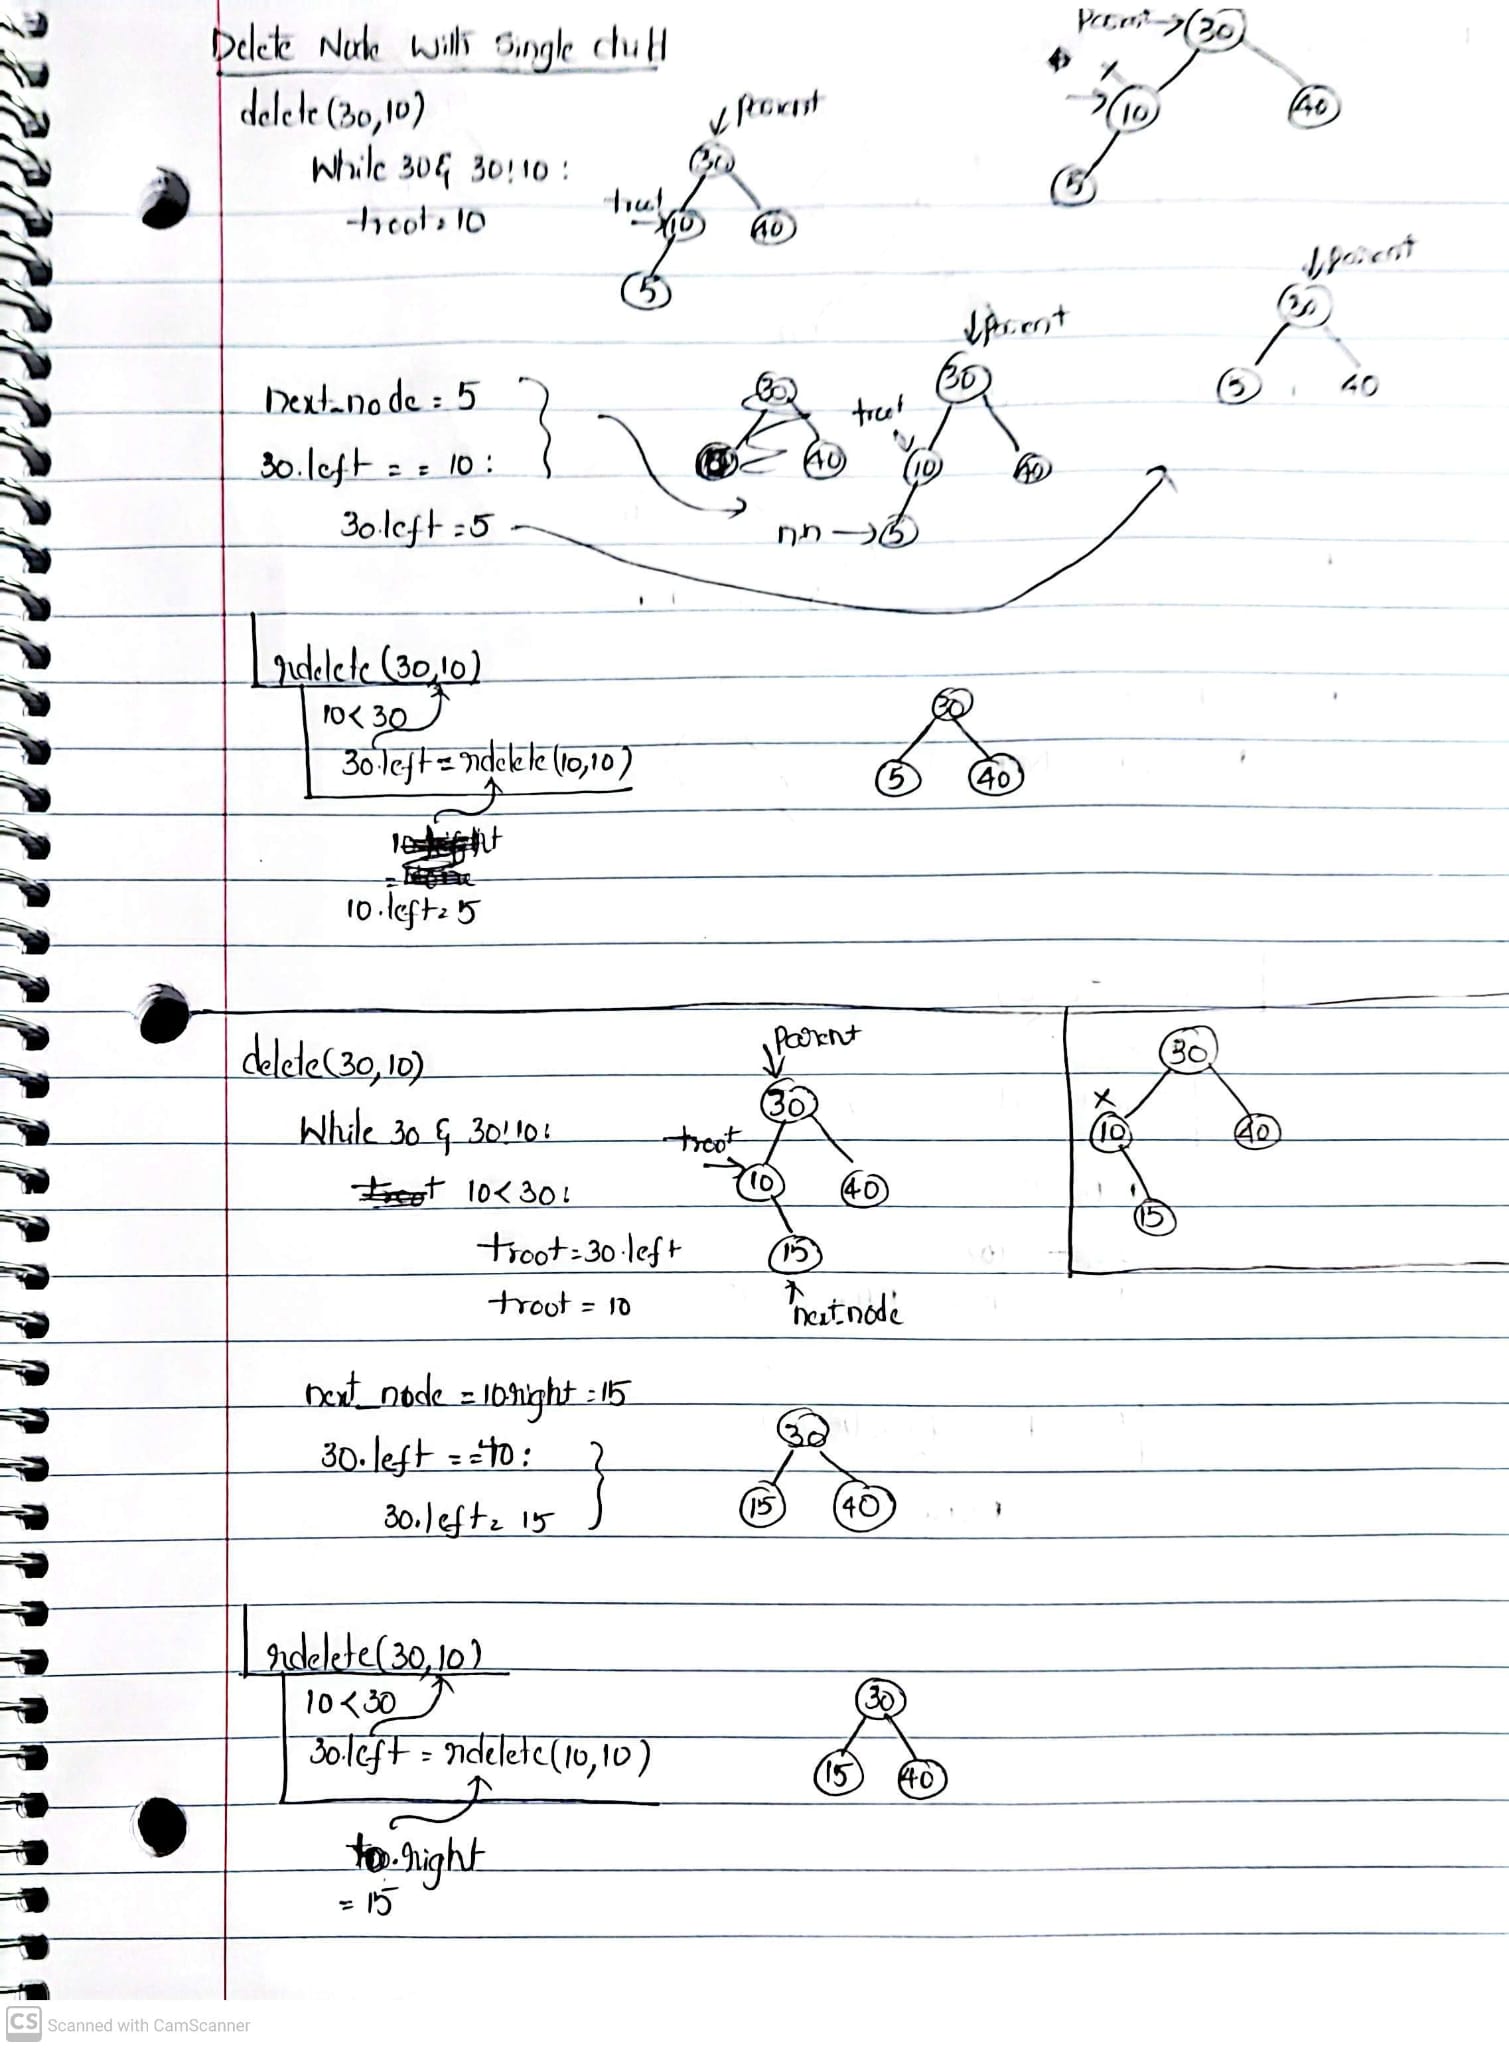 Delete Node with Single child
delete (30,10)
While 30 & 30!10 :
troot = 10
↓ Parent
30
troot
10
40
5
Parent → 30
x
→ 10
40
5
next_node = 5
30.left == 10 :
30.left = 5
30
40
↓ Parent
30
troot
10
40
nn → 5
↓ Parent
30
5
40
rdelete (30,10)
10 < 30
30.left = rdelete (10,10)
10.left = 5
30
5
40
delete (30,10)
While 30 & 30!10 :
10 < 30 :
troot = 30.left
troot = 10
Parent
30
troot
10
40
15
next node
30
x
10
40
15
next_node = 10.right = 15
30.left == 10 :
30.left = 15
30
15
40
rdelete (30,10)
10 < 30
30.left = rdelete (10,10)
10.right
= 15
30
15
40
CS Scanned with CamScanner